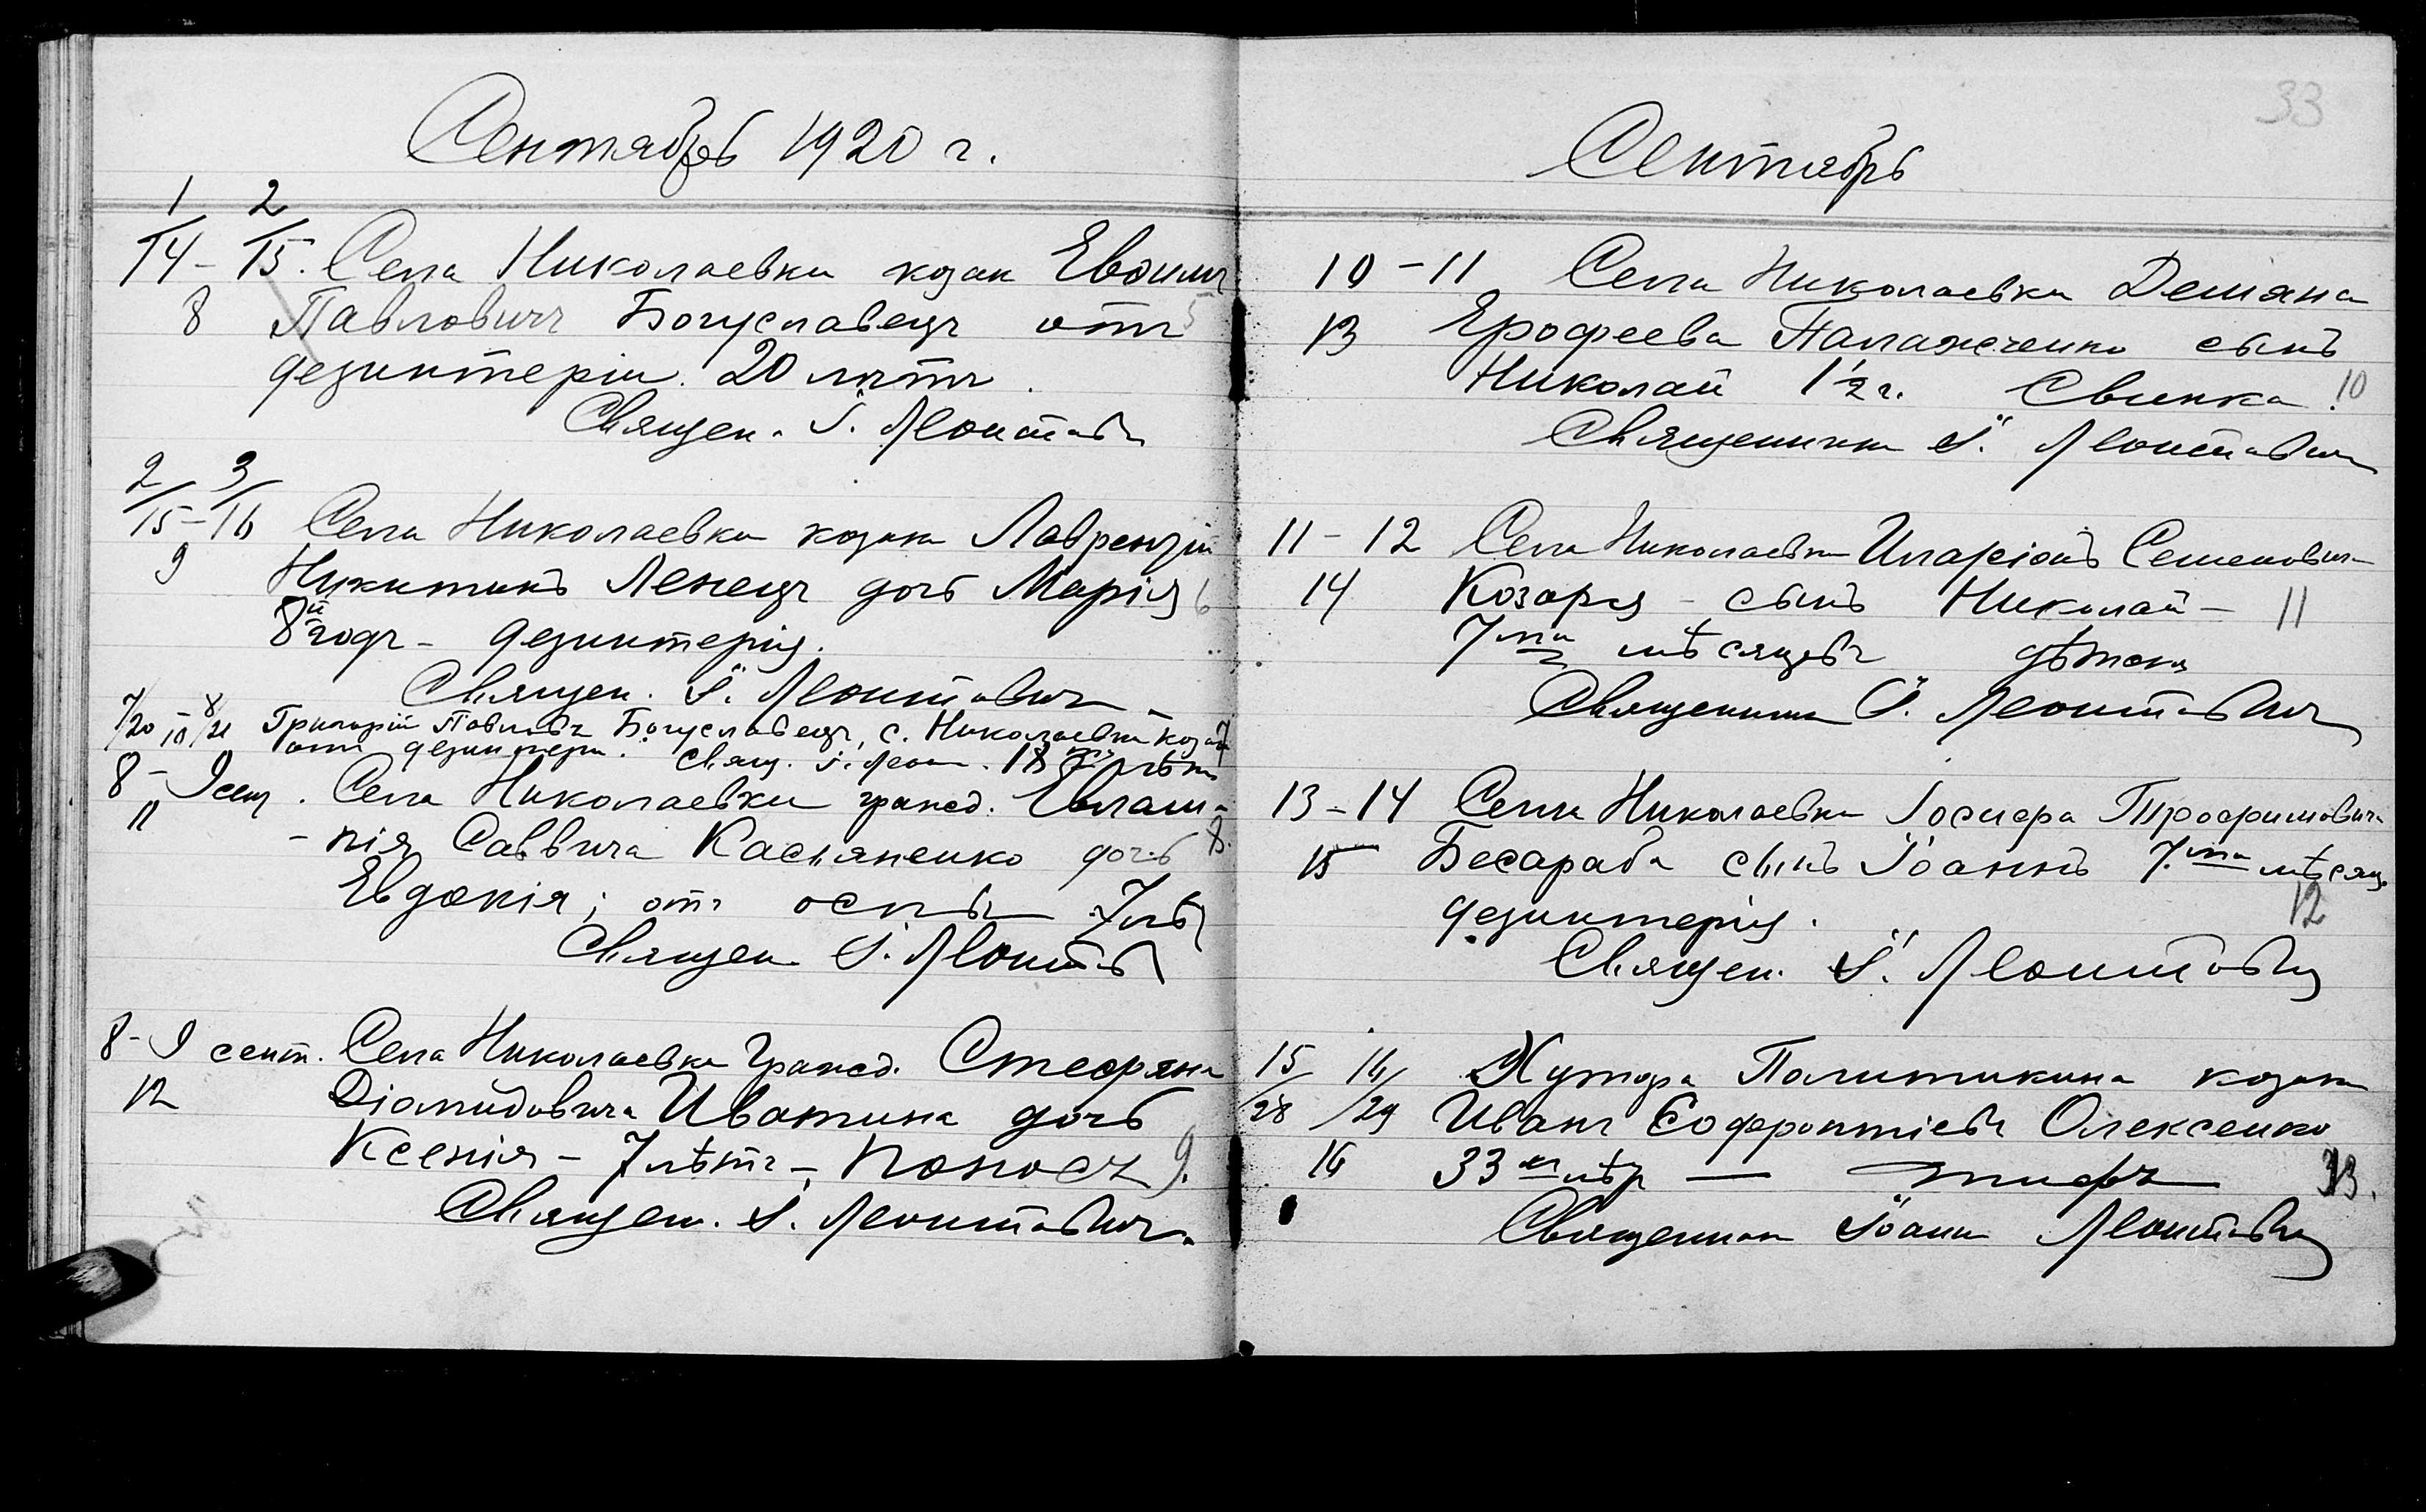 Сентябрь 1920 г.
1/14 - 2/15. Села Николаевки козак Евфим
8 Павловичъ Богуславецъ отъ 5
дезинтеріи. 20 лѣтъ.
Священ. І. Леонтов
2/15 - 3/16 Села Николаевки козака Лаврентій
9 Никитинъ Ленецъ дочь Марія 6
8й годъ - дезинтерія.
Священ. І. Леонтовичъ
7/20 - 8/21 Григорій Павловъ Богуславецъ, с. Николаевки козакъ 7
10 отъ дезинтеріи. Свящ. І. Леон. 18 лѣтъ
8 - 9 сен. Села Николаевки гражд. Евлам-
11 -пія Саввича Касьяненко дочь 8.
Евдокія; отъ оспы 7 лѣ
Священ І. Леонтов
8 - 9 сент. Села Николаевки гражд. Стефана
12 Діомидовича Иватина дочь
Ксенія - 7 лѣтъ - поносъ 9.
Священ. І. Леонтовичъ.
33
Сентябрь
10 - 11 Села Николаевки Демяна
13 Ерофеева Палажченко сынъ
Николай 1 1/2 г. Свинка. 10
Священникъ І. Леонтовичъ
11 - 12 Села Николаевки Иларіонъ Семенович
14 Козаря - сынъ Николай - 11
7ми мѣсяцевъ
Священникъ І. Леонтовичъ
13 - 14 Села Николаевки Іосифа Трофимовича
15 Бесараба сынъ Іоаннъ 7.ми мѣсяц.
дезинтерія. 12
Священ. І. Леонтович
15/28 16/29 Хутора Политикина козакъ
Иванъ Соферонтіевъ Олексенко
16 33 лѣт — тифъ 13.
Священник Іоанн Леонтович